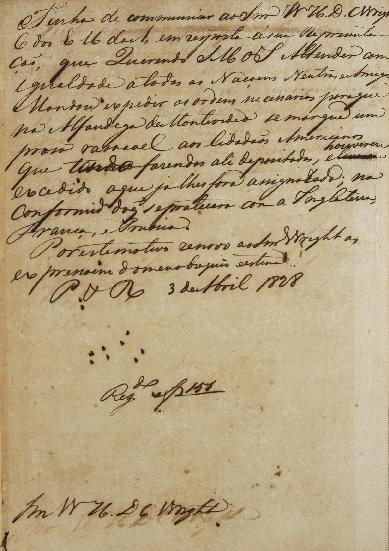 Tenho de communicar ao Snr W. H. D. C. Wright
E dos E U da A, em reposta a sua reprezenta-
cão, que Querendo S M O I Attender com
igualdade a todas as Nacoens Neutras e Amigas
Mandou expedir as ordens necesarias para que
na Alfandega de Montevideo se marque um
praso rasoavel aos Cidadãos Americanos
que fasendas ali depositada, houverem
excedido a que ja lhes fora assignado; na
conformid do q se pratica com a Inglaterra
Franca, e
Por este motivo renovo ao Snr Wright as
expressoens do meo obsequio e estima.
P. V. R. 3 de Abril 1828
Reg.do a f 151
Snr W. H. D. C. Wright